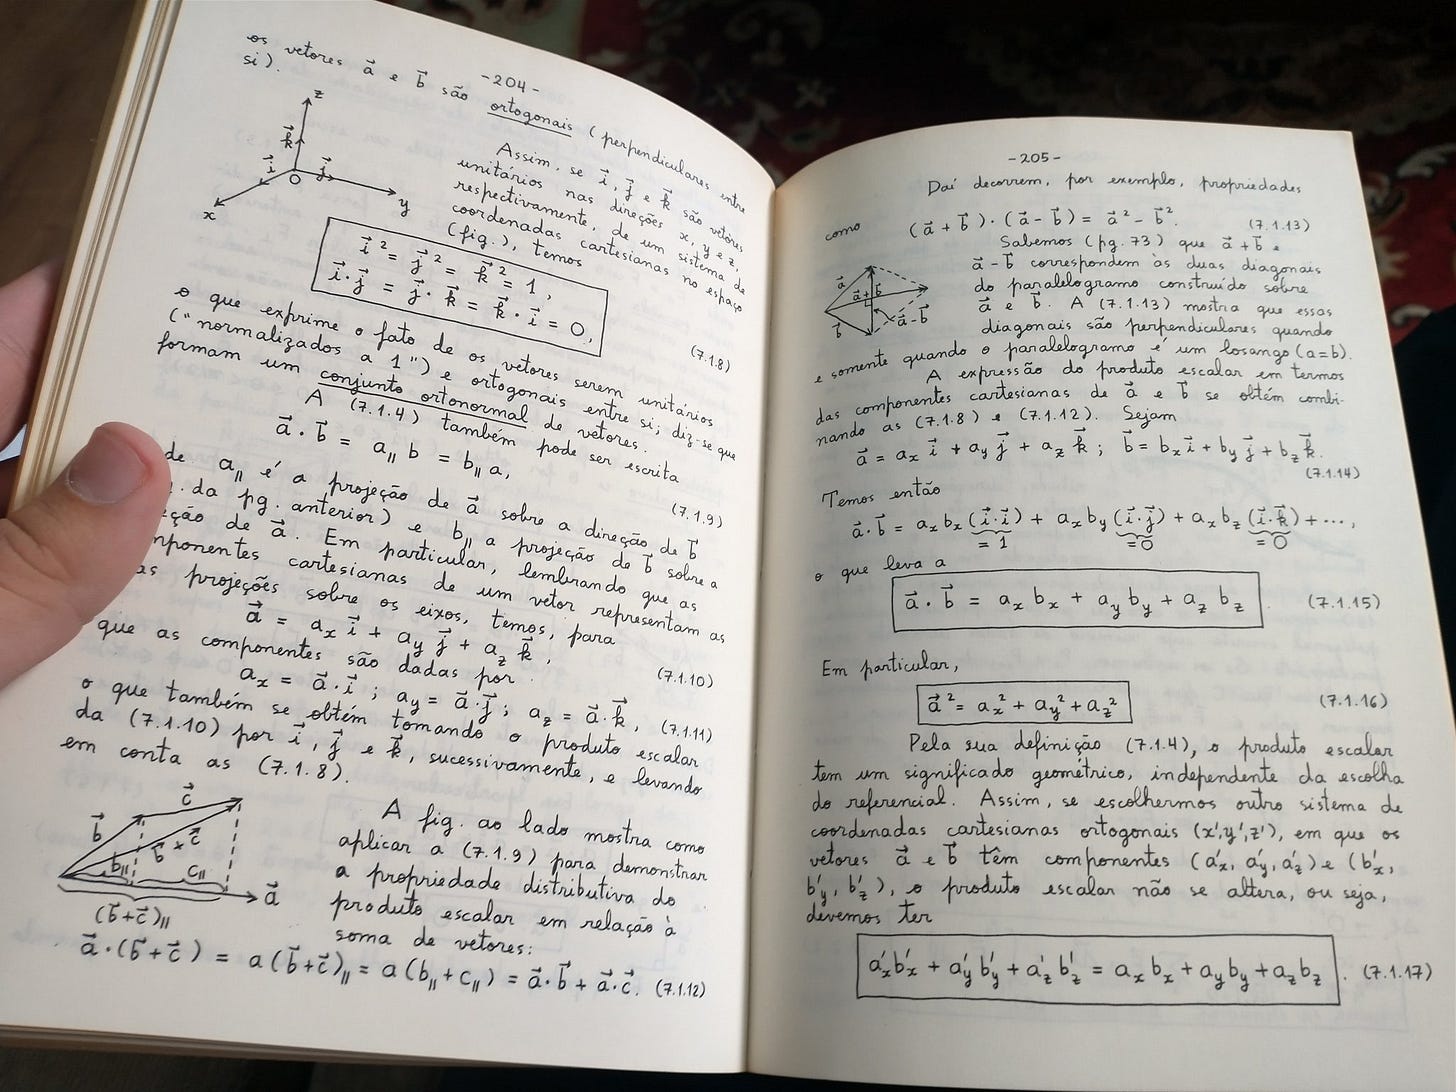 -204-
os vetores a⃗ e b⃗ são ortogonais (perpendiculares entre
si).
z
k⃗
i⃗
j⃗
O
x
y
Assim, se i⃗, j⃗ e k⃗ são vetores
unitários nas direções x, y e z,
respectivamente, de um sistema de
coordenadas cartesianas no espaço
(fig.), temos
i⃗² = j⃗² = k⃗² = 1,
i⃗·j⃗ = j⃗·k⃗ = k⃗·i⃗ = 0,
(7.1.8)
o que exprime o fato de os vetores serem unitários
("normalizados a 1") e ortogonais entre si; diz-se que
formam um conjunto ortonormal de vetores.
A (7.1.4) também pode ser escrita
a⃗·b⃗ = a∥ b = b∥ a, (7.1.9)
de a∥ é a projeção de a⃗ sobre a direção de b⃗
. da pg. anterior) e b∥ a projeção de b⃗ sobre a
eção de a⃗. Em particular, lembrando que as
mponentes cartesianas de um vetor representam as
as projeções sobre os eixos, temos, para
a⃗ = aₓ i⃗ + a_y j⃗ + a_z k⃗, (7.1.10)
que as componentes são dadas por
aₓ = a⃗·i⃗; a_y = a⃗·j⃗; a_z = a⃗·k⃗, (7.1.11)
o que também se obtém tomando o produto escalar
da (7.1.10) por i⃗, j⃗ e k⃗, sucessivamente, e levando
em conta as (7.1.8).
c⃗
b⃗
b⃗ + c⃗
b∥
c∥
a⃗
(b⃗+c⃗)∥
A fig. ao lado mostra como
aplicar a (7.1.9) para demonstrar
a propriedade distributiva do
produto escalar em relação à
soma de vetores:
a⃗·(b⃗+c⃗) = a(b⃗+c⃗)∥ = a(b∥+c∥) = a⃗·b⃗ + a⃗·c⃗. (7.1.12)
-205-
Daí decorrem, por exemplo, propriedades
como (a⃗+b⃗)·(a⃗-b⃗) = a⃗² - b⃗². (7.1.13)
a⃗
a⃗+b⃗
b⃗
a⃗-b⃗
Sabemos (pg. 73) que a⃗+b⃗ e
a⃗-b⃗ correspondem às duas diagonais
do paralelogramo construído sobre
a⃗ e b⃗. A (7.1.13) mostra que essas
diagonais são perpendiculares quando
e somente quando o paralelogramo é um losango (a=b).
A expressão do produto escalar em termos
das componentes cartesianas de a⃗ e b⃗ se obtém combi-
nando as (7.1.8) e (7.1.12). Sejam
a⃗ = aₓ i⃗ + a_y j⃗ + a_z k⃗; b⃗ = bₓ i⃗ + b_y j⃗ + b_z k⃗.
(7.1.14)
Temos então
a⃗·b⃗ = aₓbₓ(i⃗·i⃗) + aₓb_y(i⃗·j⃗) + aₓb_z(i⃗·k⃗) + ...,
=1 =0 =0
o que leva a
a⃗·b⃗ = aₓbₓ + a_y b_y + a_z b_z. (7.1.15)
Em particular,
a⃗² = aₓ² + a_y² + a_z² (7.1.16)
Pela sua definição (7.1.4), o produto escalar
tem um significado geométrico, independente da escolha
do referencial. Assim, se escolhermos outro sistema de
coordenadas cartesianas ortogonais (x',y',z'), em que os
vetores a⃗ e b⃗ têm componentes (a'ₓ, a'_y, a'_z) e (b'ₓ,
b'_y, b'_z), o produto escalar não se altera, ou seja,
devemos ter
a'ₓb'ₓ + a'_y b'_y + a'_z b'_z = aₓbₓ + a_y b_y + a_z b_z. (7.1.17)